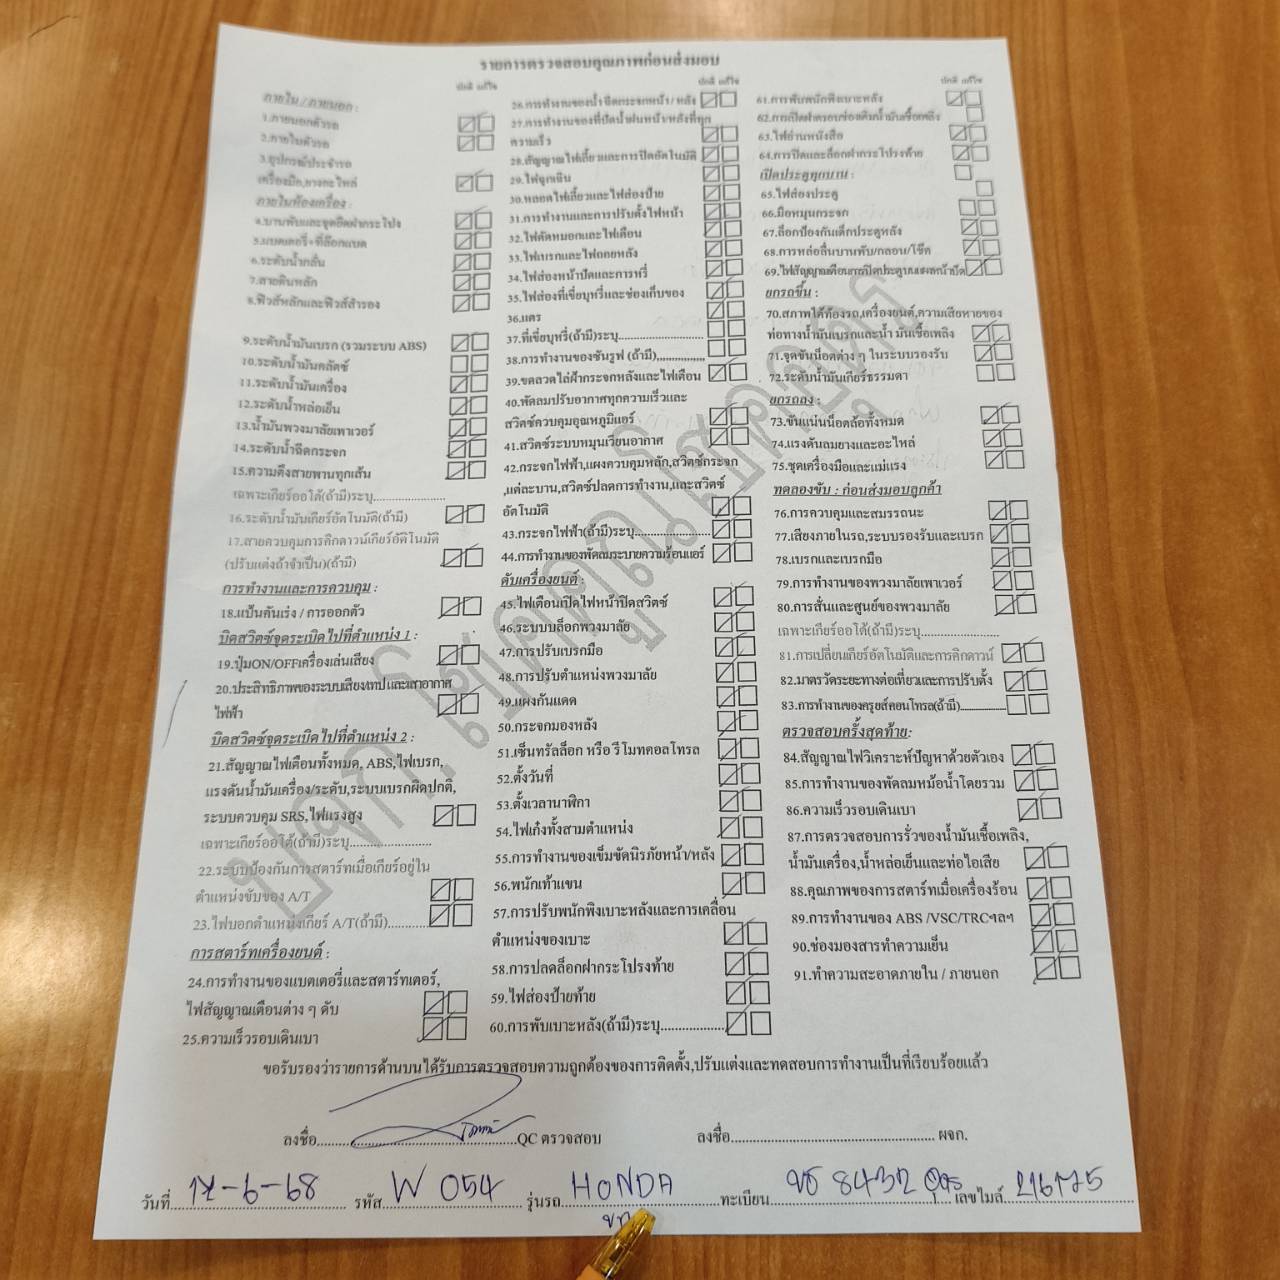 รายการตรวจสอบคุณภาพก่อนส่งมอบ
ปกติ แก้ไข
ภายใน / ภายนอก :
1.ภายนอกตัวรถ
2.ภายในตัวรถ
3.อุปกรณ์ประจำรถ
เครื่องมือ,ยางอะไหล่
ภายในห้องเครื่อง :
4.บานพับและจุดยึดฝากระโปรง
5.แบตเตอรี่+ที่ล๊อกแบต
6.ระดับน้ำกลั่น
7.สายดินหลัก
8.ฟิวส์หลักและฟิวส์สำรอง
9.ระดับน้ำมันเบรก (รวมระบบ ABS)
10.ระดับน้ำมันคลัตช์
11.ระดับน้ำมันเครื่อง
12.ระดับน้ำหล่อเย็น
13.น้ำมันพวงมาลัยเพาเวอร์
14.ระดับน้ำฉีดกระจก
15.ความตึงสายพานทุกเส้น
เฉพาะเกียร์ออโต้(ถ้ามี)ระบุ......................
16.ระดับน้ำมันเกียร์อัตโนมัติ(ถ้ามี)
17.สายควบคุมการคิกดาวน์เกียร์อัติโนมัติ
(ปรับแต่งถ้าจำเป็น)(ถ้ามี)
การทำงานและการควบคุม :
18.แป้นคันเร่ง / การออกตัว
บิดสวิตซ์จุดระเบิดไปที่ตำแหน่ง 1 :
19.ปุ่มON/OFFเครื่องเล่นเสียง
20.ประสิทธิภาพของระบบเสียง/เทป และเสาอากาศ
ไฟฟ้า
บิดสวิตซ์จุดระเบิดไปที่ตำแหน่ง 2 :
21.สัญญาณไฟเตือนทั้งหมด, ABS,ไฟเบรก,
แรงดันน้ำมันเครื่อง/ระดับ,ระบบเบรกผิดปกติ,
ระบบควบคุม SRS,ไฟแรงสูง
เฉพาะเกียร์ออโต้(ถ้ามี)ระบุ......................
22.ระบบป้องกันการสตาร์ทเมื่อเกียร์อยู่ใน
ตำแหน่งขับของ A/T
23.ไฟบอกตำแหน่งเกียร์ A/T(ถ้ามี)...........
การสตาร์ทเครื่องยนต์ :
24.การทำงานของแบตเตอรี่และสตาร์ทเตอร์,
ไฟสัญญาณเตือนต่าง ๆ ดับ
25.ความเร็วรอบเดินเบา
ปกติ แก้ไข
26.การทำงานของน้ำ ฉีดกระจกหน้า/ หลัง
27.การทำงานของที่ปัดน้ำฝนหน้า/หลังที่ทุก
ความเร็ว
28.สัญญาณไฟเลี้ยวและการปิดอัตโนมัติ
29.ไฟฉุกเฉิน
30.หลอดไฟเลี้ยวและไฟส่องป้าย
31.การทำงานและการปรับตั้งไฟหน้า
32.ไฟตัดหมอกและไฟเตือน
33.ไฟเบรกและไฟถอยหลัง
34.ไฟส่องหน้าปัดและการหรี่
35.ไฟส่องที่เขี่ยบุหรี่และช่องเก็บของ
36.แตร
37.ที่เขี่ยบุหรี่(ถ้ามี)ระบุ......................
38.การทำงานของซันรูฟ (ถ้ามี)...............
39.ขดลวดไล่ฝ้ากระจกหลังและไฟเตือน
40.พัดลมปรับอากาศทุกความเร็วและ
สวิตซ์ควบคุมอุณหภูมิแอร์
41.สวิตซ์ระบบหมุนเวียนอากาศ
42.กระจกไฟฟ้า,แผงควบคุมหลัก,สวิตซ์กระจก
,แต่ละบาน,สวิตซ์ปลดการทำงาน,และสวิตซ์
อัตโนมัติ
43.กระจกไฟฟ้า(ถ้ามี)ระบุ....................
44.การทำงานของพัดลมระบายความร้อนแอร์
ดับเครื่องยนต์ :
45.ไฟเตือนเปิดไฟหน้าปิดสวิตซ์
46.ระบบบล็อกพวงมาลัย
47.การปรับเบรกมือ
48.การปรับตำแหน่งพวงมาลัย
49.แผงกันแดด
50.กระจกมองหลัง
51.เซ็นทรัลล็อก หรือ รีโมทคอลโทรล
52.ตั้งวันที่
53.ตั้งเวลานาฬิกา
54.ไฟเก๋งทั้งสามตำแหน่ง
55.การทำงานของเข็มขัดนิรภัยหน้า/หลัง
56.พนักเท้าแขน
57.การปรับพนักพิงเบาะหลังและการเคลื่อน
ตำแหน่งของเบาะ
58.การปลดล็อกฝากระโปรงท้าย
59.ไฟส่องป้ายท้าย
60.การพับเบาะหลัง(ถ้ามี)ระบุ...............
ปกติ แก้ไข
61.การพับพนักพิงเบาะหลัง
62.การเปิดฝาครอบช่องเติมน้ำมันเชื้อเพลิง
63.ไฟอ่านหนังสือ
64.การปิดและล็อกฝากระโปรงท้าย
เปิดประตูทุกบาน :
65.ไฟส่องประตู
66.มือหมุนกระจก
67.ล็อกป้องกันเด็กประตูหลัง
68.การหล่อลื่นบานพับ/กลอน/โช๊ค
69.ไฟสัญญาณเตือนการปิดประตูบนแผงหน้าปัด
ยกรถขึ้น :
70.สภาพใต้ท้องรถ,เครื่องยนต์,ความเสียหายของ
ท่อทางน้ำมันเบรกและน้ำ มันเชื้อเพลิง
71.จุดขันน็อตต่าง ๆ ในระบบรองรับ
72.ระดับน้ำมันเกียร์ธรรมดา
ยกรถลง :
73.ขันแน่นน็อตล้อทั้งหมด
74.แรงดันลมยางและอะไหล่
75.ชุดเครื่องมือและแม่แรง
ทดลองขับ : ก่อนส่งมอบลูกค้า
76.การควบคุมและสมรรถนะ
77.เสียงภายในรถ,ระบบรองรับและเบรก
78.เบรกและเบรกมือ
79.การทำงานของพวงมาลัยเพาเวอร์
80.การสั่นและศูนย์ของพวงมาลัย
เฉพาะเกียร์ออโต้(ถ้ามี)ระบุ......................
81.การเปลี่ยนเกียร์อัตโนมัติและการคิกดาวน์
82.มาตรวัดระยะทางต่อเที่ยวและการปรับตั้ง
83.การทำงานของครูยส์คอนโทรล(ถ้ามี)..............
ตรวจสอบครั้งสุดท้าย:
84.สัญญาณไฟวิเคราะห์ปัญหาด้วยตัวเอง
85.การทำงานของพัดลมหม้อน้ำโดยรวม
86.ความเร็วรอบเดินเบา
87.การตรวจสอบการรั่วของน้ำมันเชื้อเพลิง,
น้ำมันเครื่อง,น้ำหล่อเย็นและท่อไอเสีย
88.คุณภาพของการสตาร์ทเมื่อเครื่องร้อน
89.การทำงานของ ABS /VSC/TRCฯลฯ
90.ช่องมองสารทำความเย็น
91.ทำความสะอาดภายใน / ภายนอก
ขอรับรองว่ารายการด้านบนได้รับการตรวจสอบความถูกต้องของการติดตั้ง,ปรับแต่งและทดสอบการทำงานเป็นที่เรียบร้อยแล้ว
ลงชื่อ....................QC ตรวจสอบ ลงชื่อ.................... ผจก.
วันที่ 17-6-68 รหัส W 054 รุ่นรถ HONDA ทะเบียน ขอ 8432 เลขไมล์ 216775